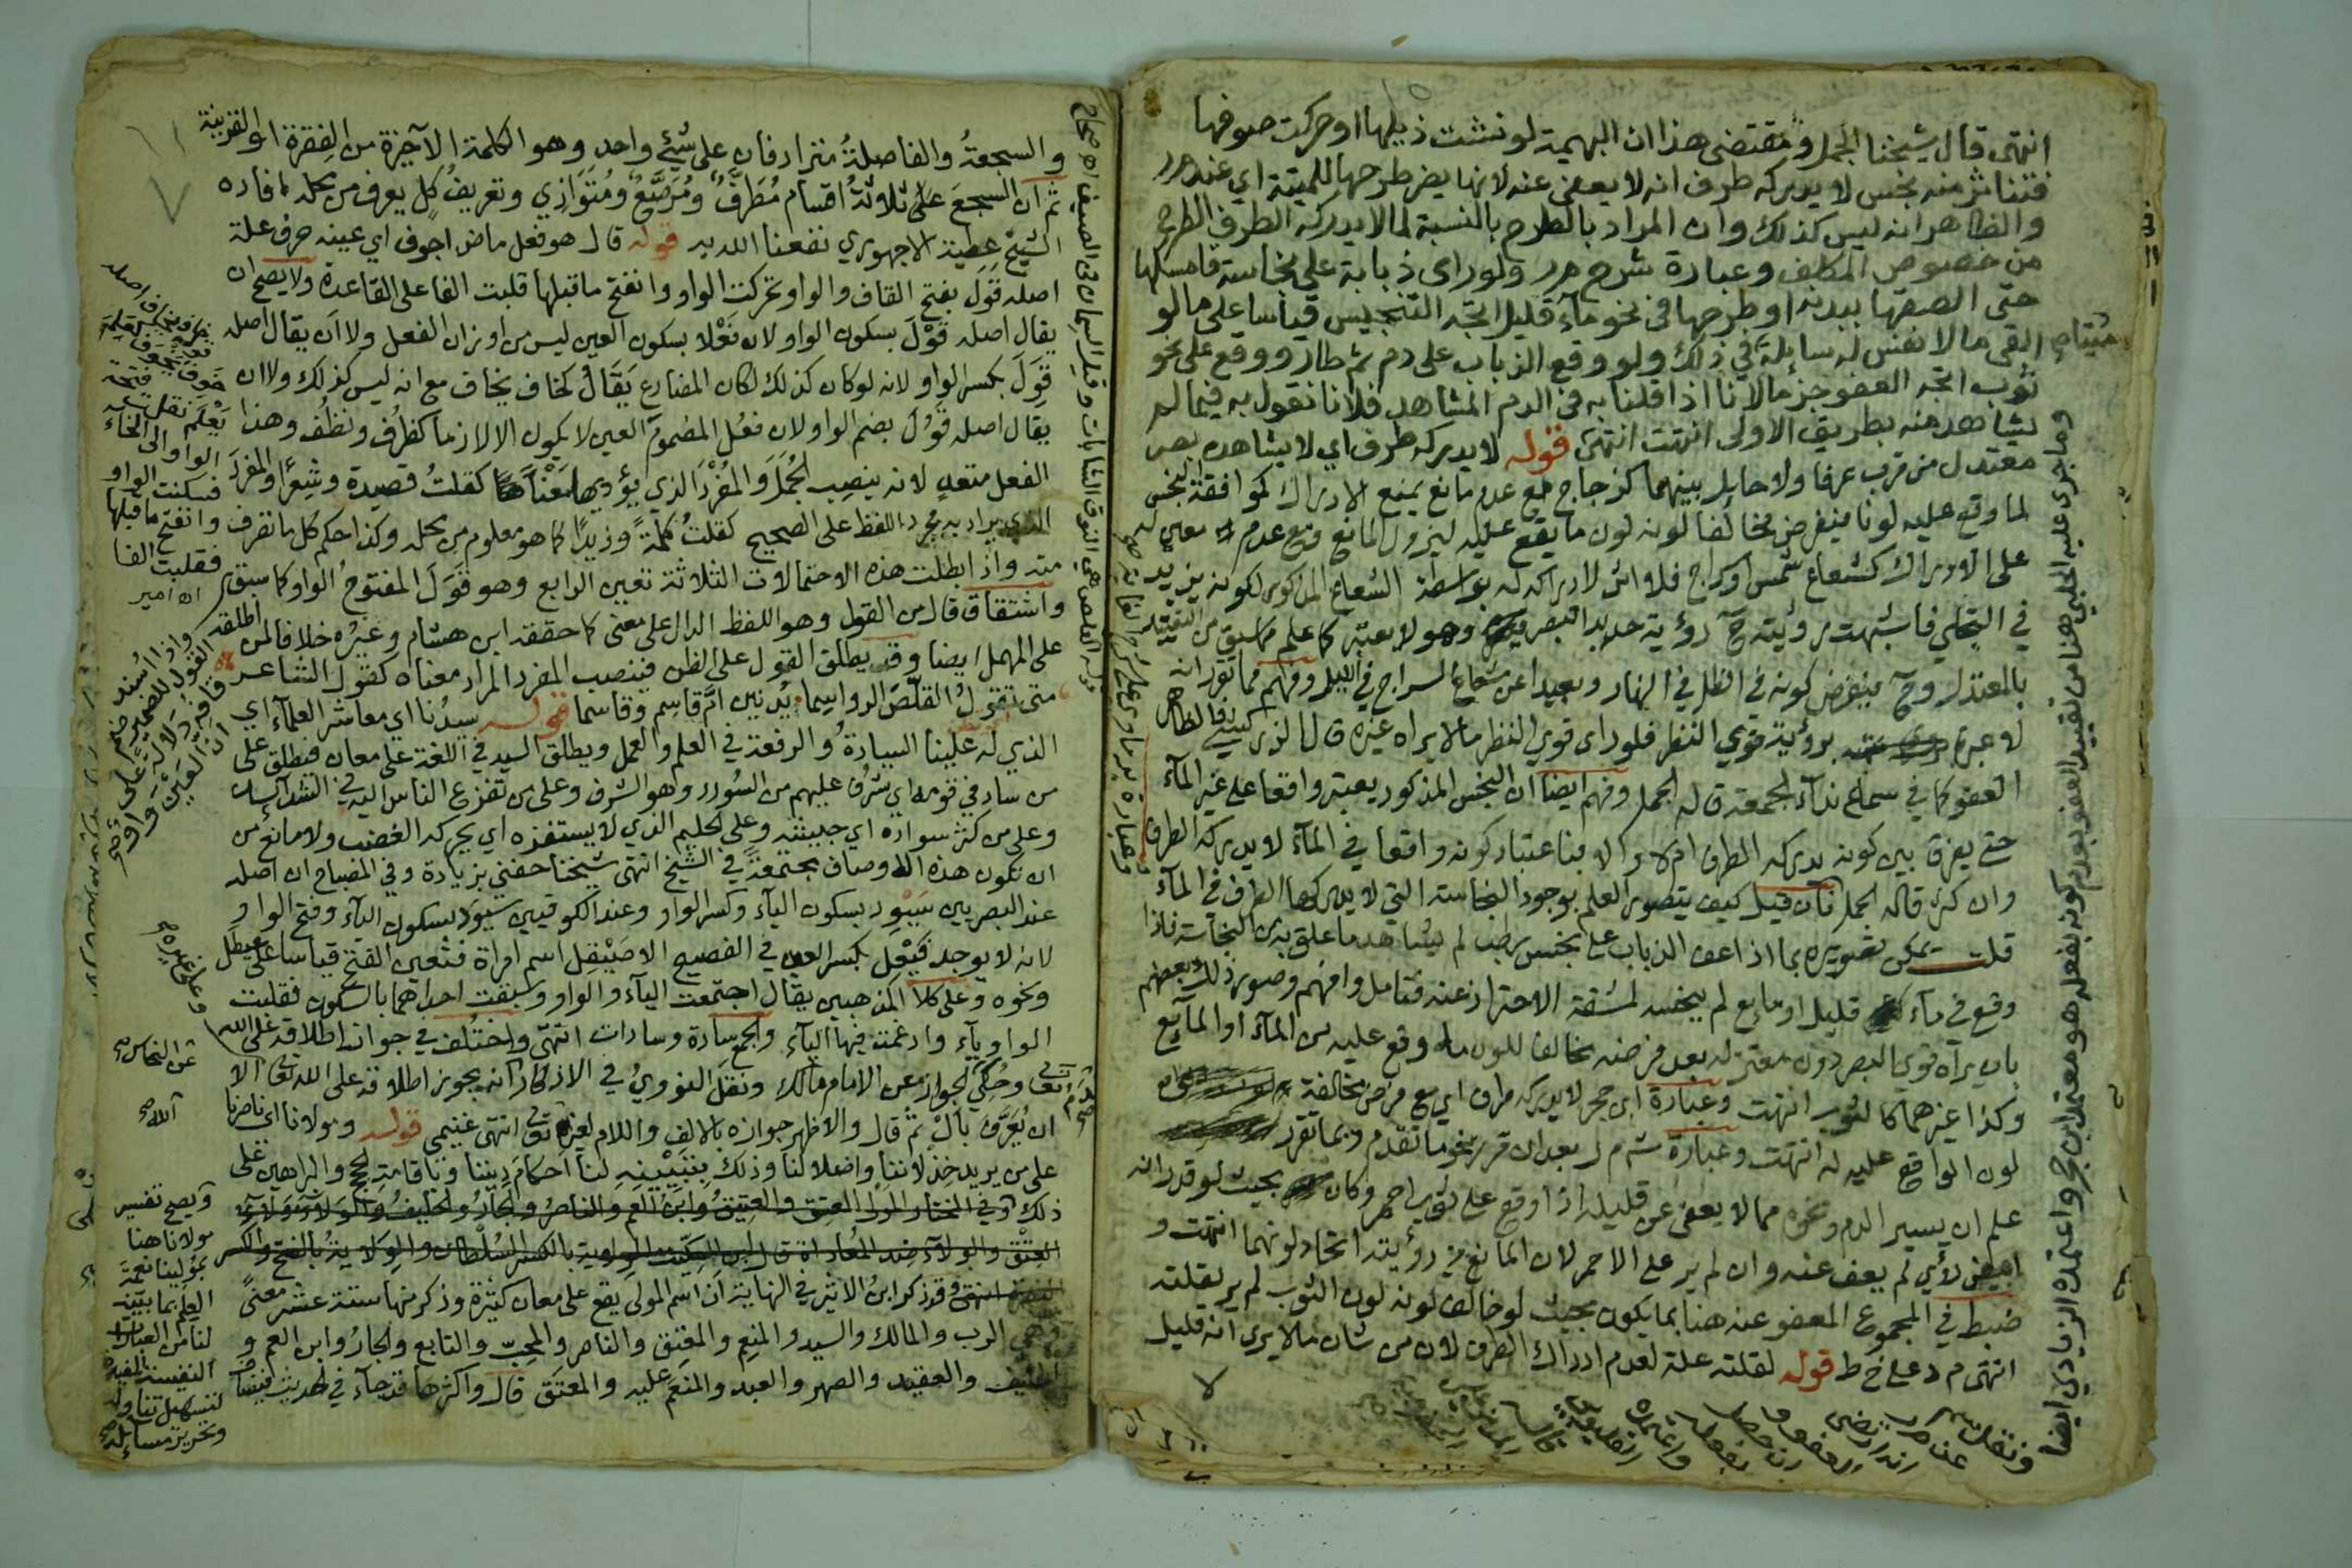 انتهى قال شيخنا الجمل ومقتضى هذا ان البهيمة لو نشت ذيلها او حركت صوفها
فتناثر منه نجس لا يدركه طرف انه لا يعفى عنه لانها يضر طرحها للميتة اي عند مر
والظاهر انه ليس كذلك وان المراد بالطرح بالنسبة لما لا يدركه الطرف الطرح
من خصوص المكلف وعبارة شرح مر ولو راى ذبابة على نجاسة فامسكها
حتى الصقها ببدنه او طرحها في نحو ماء قليل اتجه التنجيس قياسا على ما لو
القى ما لا نفس له سائلة في ذلك ولو وقع الذباب على دم ثم طار ووقع على نحو
ميتا صح
ثوب اتجه العفو جزما لانا اذا قلنا به في الدم المشاهد فلانا نقول به فيما لم
يشاهد منه بطريق الاولى انتهت انتهى قوله لا يدركه طرف اي لا يشاهده بصر
معتدل من قرب عرفا ولا حايل بينهما كزجاج مع عدم مانع يمنع الادراك كموافقة النجس
لما وقع عليه لونا فيفرض مخالفا لونه لون ما يقع عليه ليزول المانع ومع عدم معين له
على الادراك كشعاع شمس او سراج فلا اثر لادراكه له بواسطة الشعاع المذكور لكونه يزيد
في التجلي فاشبهت رؤيته ح رؤية حديد البصر وهو لا يعتبر كما علم مما سبق من التقييد
بالمعتدل وح فيفرض كونه في الظل في النهار وبعيدا عن شعاع السراج في الليل وفهم مما تقرر انه
لا عبرة برؤية قوي النظر فلو راى قوي النظر ما لا يراه غيره قال الزركشي فالظاهر
العفو كما في سماع نداء الجمعة قاله الجمل وفهم ايضا ان النجس المذكور يعتبر واقعا على غير الماء
حتى يفرق بين كونه يدركه الطرف ام لا والا فباعتبار كونه واقعا في الماء لا يدركه الطرف
وان كثر قاله الجمل فان قيل كيف يتصور العلم بوجود النجاسة التي لا يدركها الطرف في الماء
قلت يمكن تصويره بما اذا عف الذباب على نجس رطب لم يشاهد ما علق به من النجاسة فاذا
وقع في ماء قليل او مايع لم ينجسه لمشقة الاحتراز عنه فتامل وافهم وصور ذلك بعضهم
بان يراه قوي البصر دون معتدله بعد فرضه مخالفا للون ما وقع عليه من الماء او المايع
وكذا غيرهما كالثوب انتهت وعبارة ابن حجر لا يدركه طرف اي مع فرض مخالفة
لون الواقع عليه له انتهت وعبارة ش م ر بعد ان قرر نحو ما تقدم وبما تقرر
علم ان يسير الدم ونحوه مما لا يعفى عن قليله اذا وقع على ثوب احمر وكان بحيث لو قدر انه
ابيض رؤي لم يعف عنه وان لم ير على الاحمر لان المانع من رؤيته اتحاد لونهما انتهت و
ضبط في المجموع المعفو عنه هنا بما يكون بحيث لو خالف لونه لون الثوب لم ير لقلته
انتهى م د على خ ط قوله لقلته علة لعدم ادراك الطرف لان من شان ما لا يرى انه قليل
وما جرى عليه الحلبي هنا من تقييد العفو بعدم كونه بفعله هو معتمد ابن حجر واعتمده الزيادي ايضا
والسجعة والفاصلة مترادفان على شيء واحد وهو الكلمة الاخيرة من الفقرة او القرينة
ثم ان السجع على ثلاثة اقسام مطرف ومرصع ومتوازي وتعريف كل يعرف من محله افاده
الشيخ عطية الاجهوري نفعنا الله به قوله قال هو فعل ماض اجوف اي عينه حرف علة
اصله قول بفتح القاف والواو تحركت الواو وانفتح ما قبلها قلبت الفا على القاعدة ولا يصح ان
يقال اصله قول بسكون الواو لان فعلا بسكون العين ليس من اوزان الفعل ولا ان يقال اصله
قول بكسر الواو لانه لو كان كذلك لكان المضارع يقال كخاف يخاف مع انه ليس كذلك ولا ان
يقال اصله قول بضم الواو لان فعل المضموم العين لا يكون الا لازما كظرف ونظف وهذا
الفعل متعد لانه ينصب الجمل والمفرد الذي يؤدي معناها كقلت قصيدة وشعرا والمفرد
الذي يراد به مجرد اللفظ على الصحيح كقلت كلمة وزيدا كما هو معلوم من محله وكذا حكم كل ما تصرف
منه واذا بطلت هذه الاحتمالات الثلاثة تعين الرابع وهو قول المفتوح الواو كما سبق
واشتقاق قال من القول وهو اللفظ الدال على معنى كما حققه ابن هشام وغيره خلافا لمن اطلقه
على المهمل ايضا وقد يطلق القول على الظن فينصب المفرد المراد معناه كقول الشاعر
متى تقول القلص الرواسما يدنين ام قاسم وقاسما قوله سيدنا اي معاشر العلماء اي
الذي له علينا السيادة والرفعة في العلم والعمل ويطلق السيد في اللغة على معان فيطلق على
من ساد في قومه اي شرف عليهم من السودد وهو الشرف وعلى من تفزع الناس اليه في الشدائد
وعلى من كثر سواده اي جيشه وعلى الحليم الذي لا يستفزه اي يحركه الغضب ولا مانع من
ان تكون هذه الاوصاف مجتمعة في الشيخ انتهى شيخنا حفني بزيادة وفي المصباح ان اصله
عند البصريين سيود بسكون الياء وكسر الواو وعند الكوفيين سيود بسكون الياء وفتح الواو
لانه لا يوجد فيعل بكسر العين في الصحيح الا صيقل اسم امراة فتعين الفتح قياسا على عيطل
ونحوه وعلى كلا المذهبين يقال اجتمعت الياء والواو وسبقت احداهما بالسكون فقلبت
الواو ياء وادغمت فيها الياء والجمع سادة وسادات انتهى واختلف في جواز اطلاقه على الله
تعالى وحكي الجواز عن الامام مالك ونقل النووي في الاذكار انه يجوز اطلاقه على الله تعالى الا
ان يعرف بال ثم قال والاظهر جوازه بالالف واللام لغير الله تعالى انتهى غنيمي قوله ومولانا اي ناصرنا
على من يريد خذلاننا واضلالنا وذلك بتبيينه لنا احكام ديننا وباقامته الحجج والبراهين على
ذلك وفي المختار المولى المعتق والعتيق وابن العم والناصر والجار والحليف والولاء ولاء
العتق والولاء ضد المعاداة قال ابن السكيت الولاية بالكسر السلطان والولاية بالفتح والكسر
النصرة انتهى وقد ذكر ابن الاثير في النهاية ان اسم المولى يقع على معان كثيرة وذكر منها ستة عشر معنى
وهي الرب والمالك والسيد والمنعم والمعتق والناصر والمحب والتابع والجار وابن العم و
الحليف والعقيد والصهر والعبد والمنعم عليه والمعتق قال واكثرها قد جاء في الحديث فيضاف
يعلم نقلت فتحة
الواو الى الخاء
فسكنت الواو
وانفتح ما قبلها
فقلبت الفا
اه امير
عن النحاس صح
الله صح
ويصح تفسير
مولانا هنا
بمولينا نعمة
العلم بما بينه
لنا من العبارات
النفيسة المفيدة
لتسهيل تناوله
وتحرير مسائله صح